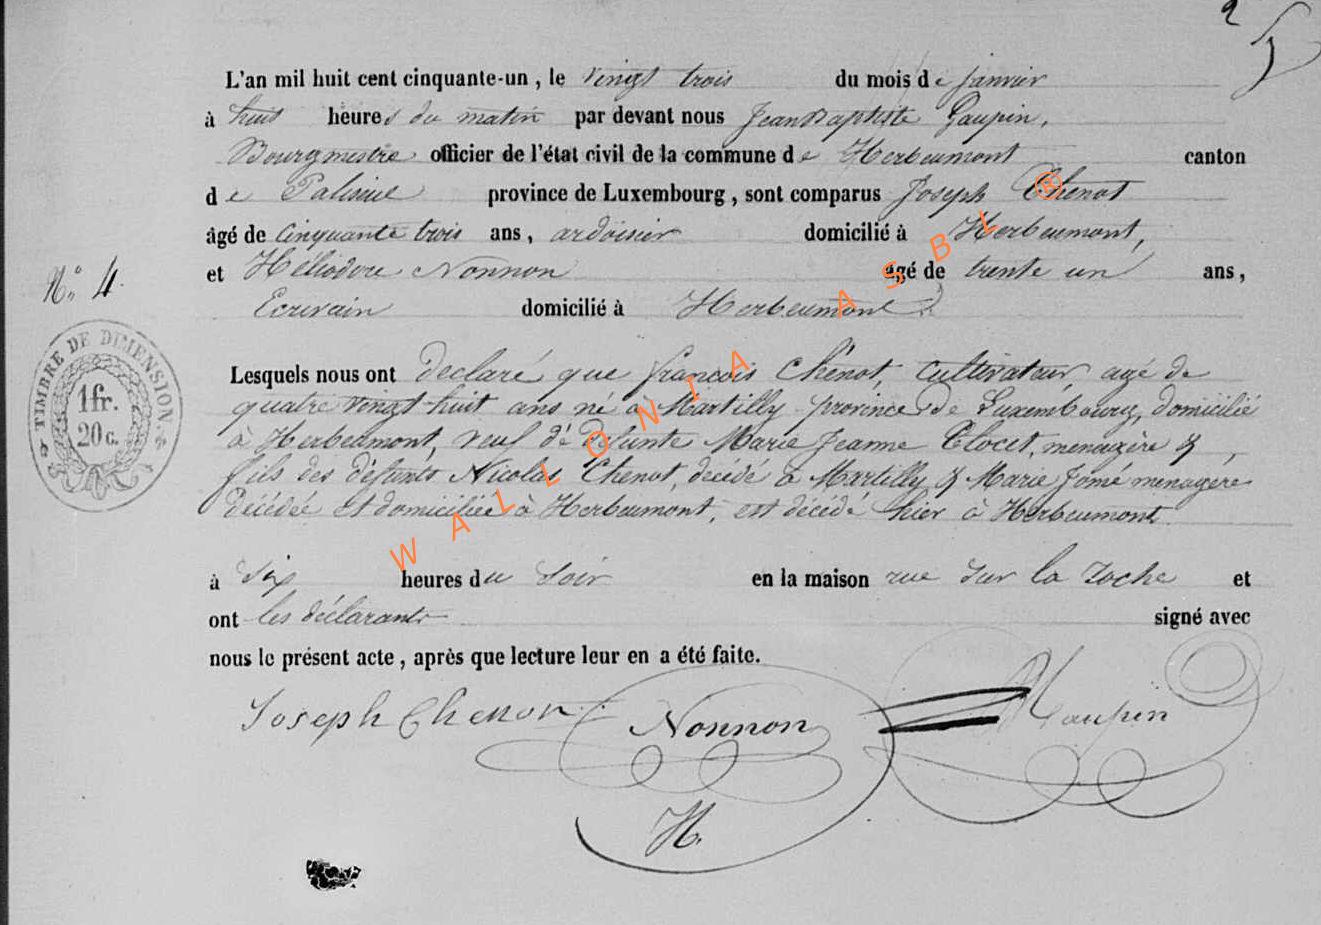 2
L'an mil huit cent cinquante-un, le vingt trois du mois de janvier
à huit heures du matin par devant nous Jean Baptiste Gaupin,
Bourgmestre officier de l'état civil de la commune de Herbeumont canton
de Paliseul province de Luxembourg, sont comparus Joseph Chenot
âgé de cinquante trois ans, ardoisier domicilié à Herbeumont,
et Héliodore Nonnon âgé de trente un ans,
Ecrivain domicilié à Herbeumont.
N° 4.
TIMBRE DE DIMENSION.
1 fr.
20 c.
Lesquels nous ont déclaré que françois Chenot, Cultivateur, agé de
quatre vingt-huit ans né à Martilly province de Luxembourg, domicilié
à Herbeumont, veuf de défunte Marie Jeanne Clocet, menagère &
fils des défunts Nicolas Chenot, décédé à Martilly & Marie Jomé menagère
décédée et domiciliée à Herbeumont, est décédé hier à Herbeumont
à Six heures du Soir en la maison rue Sur la Roche et
ont les déclarants signé avec
nous le présent acte, après que lecture leur en a été faite.
Joseph Chenot Nonnon Gaupin
H.
WALLONIA ASBL ®